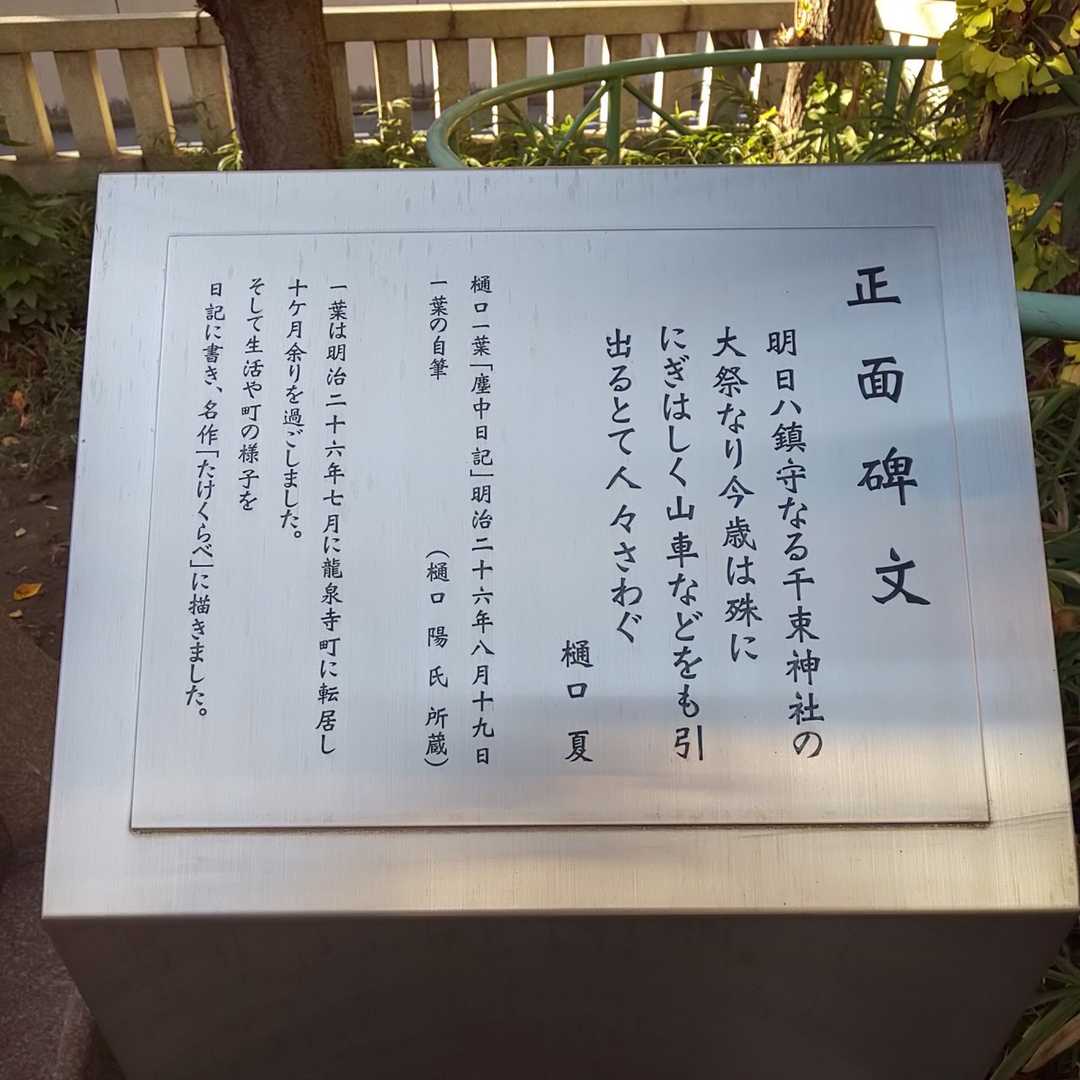 正面碑文
明日ハ鎮守なる千束神社の
大祭なり今歳は殊に
にぎはしく山車などをも引
出るとて人々さわぐ
樋口 夏
樋口一葉「塵中日記」明治二十六年八月十九日
一葉の自筆 （樋口 陽 氏 所蔵）
一葉は明治二十六年七月に龍泉寺町に転居し
十ケ月余りを過ごしました。
そして生活や町の様子を
日記に書き、名作「たけくらべ」に描きました。